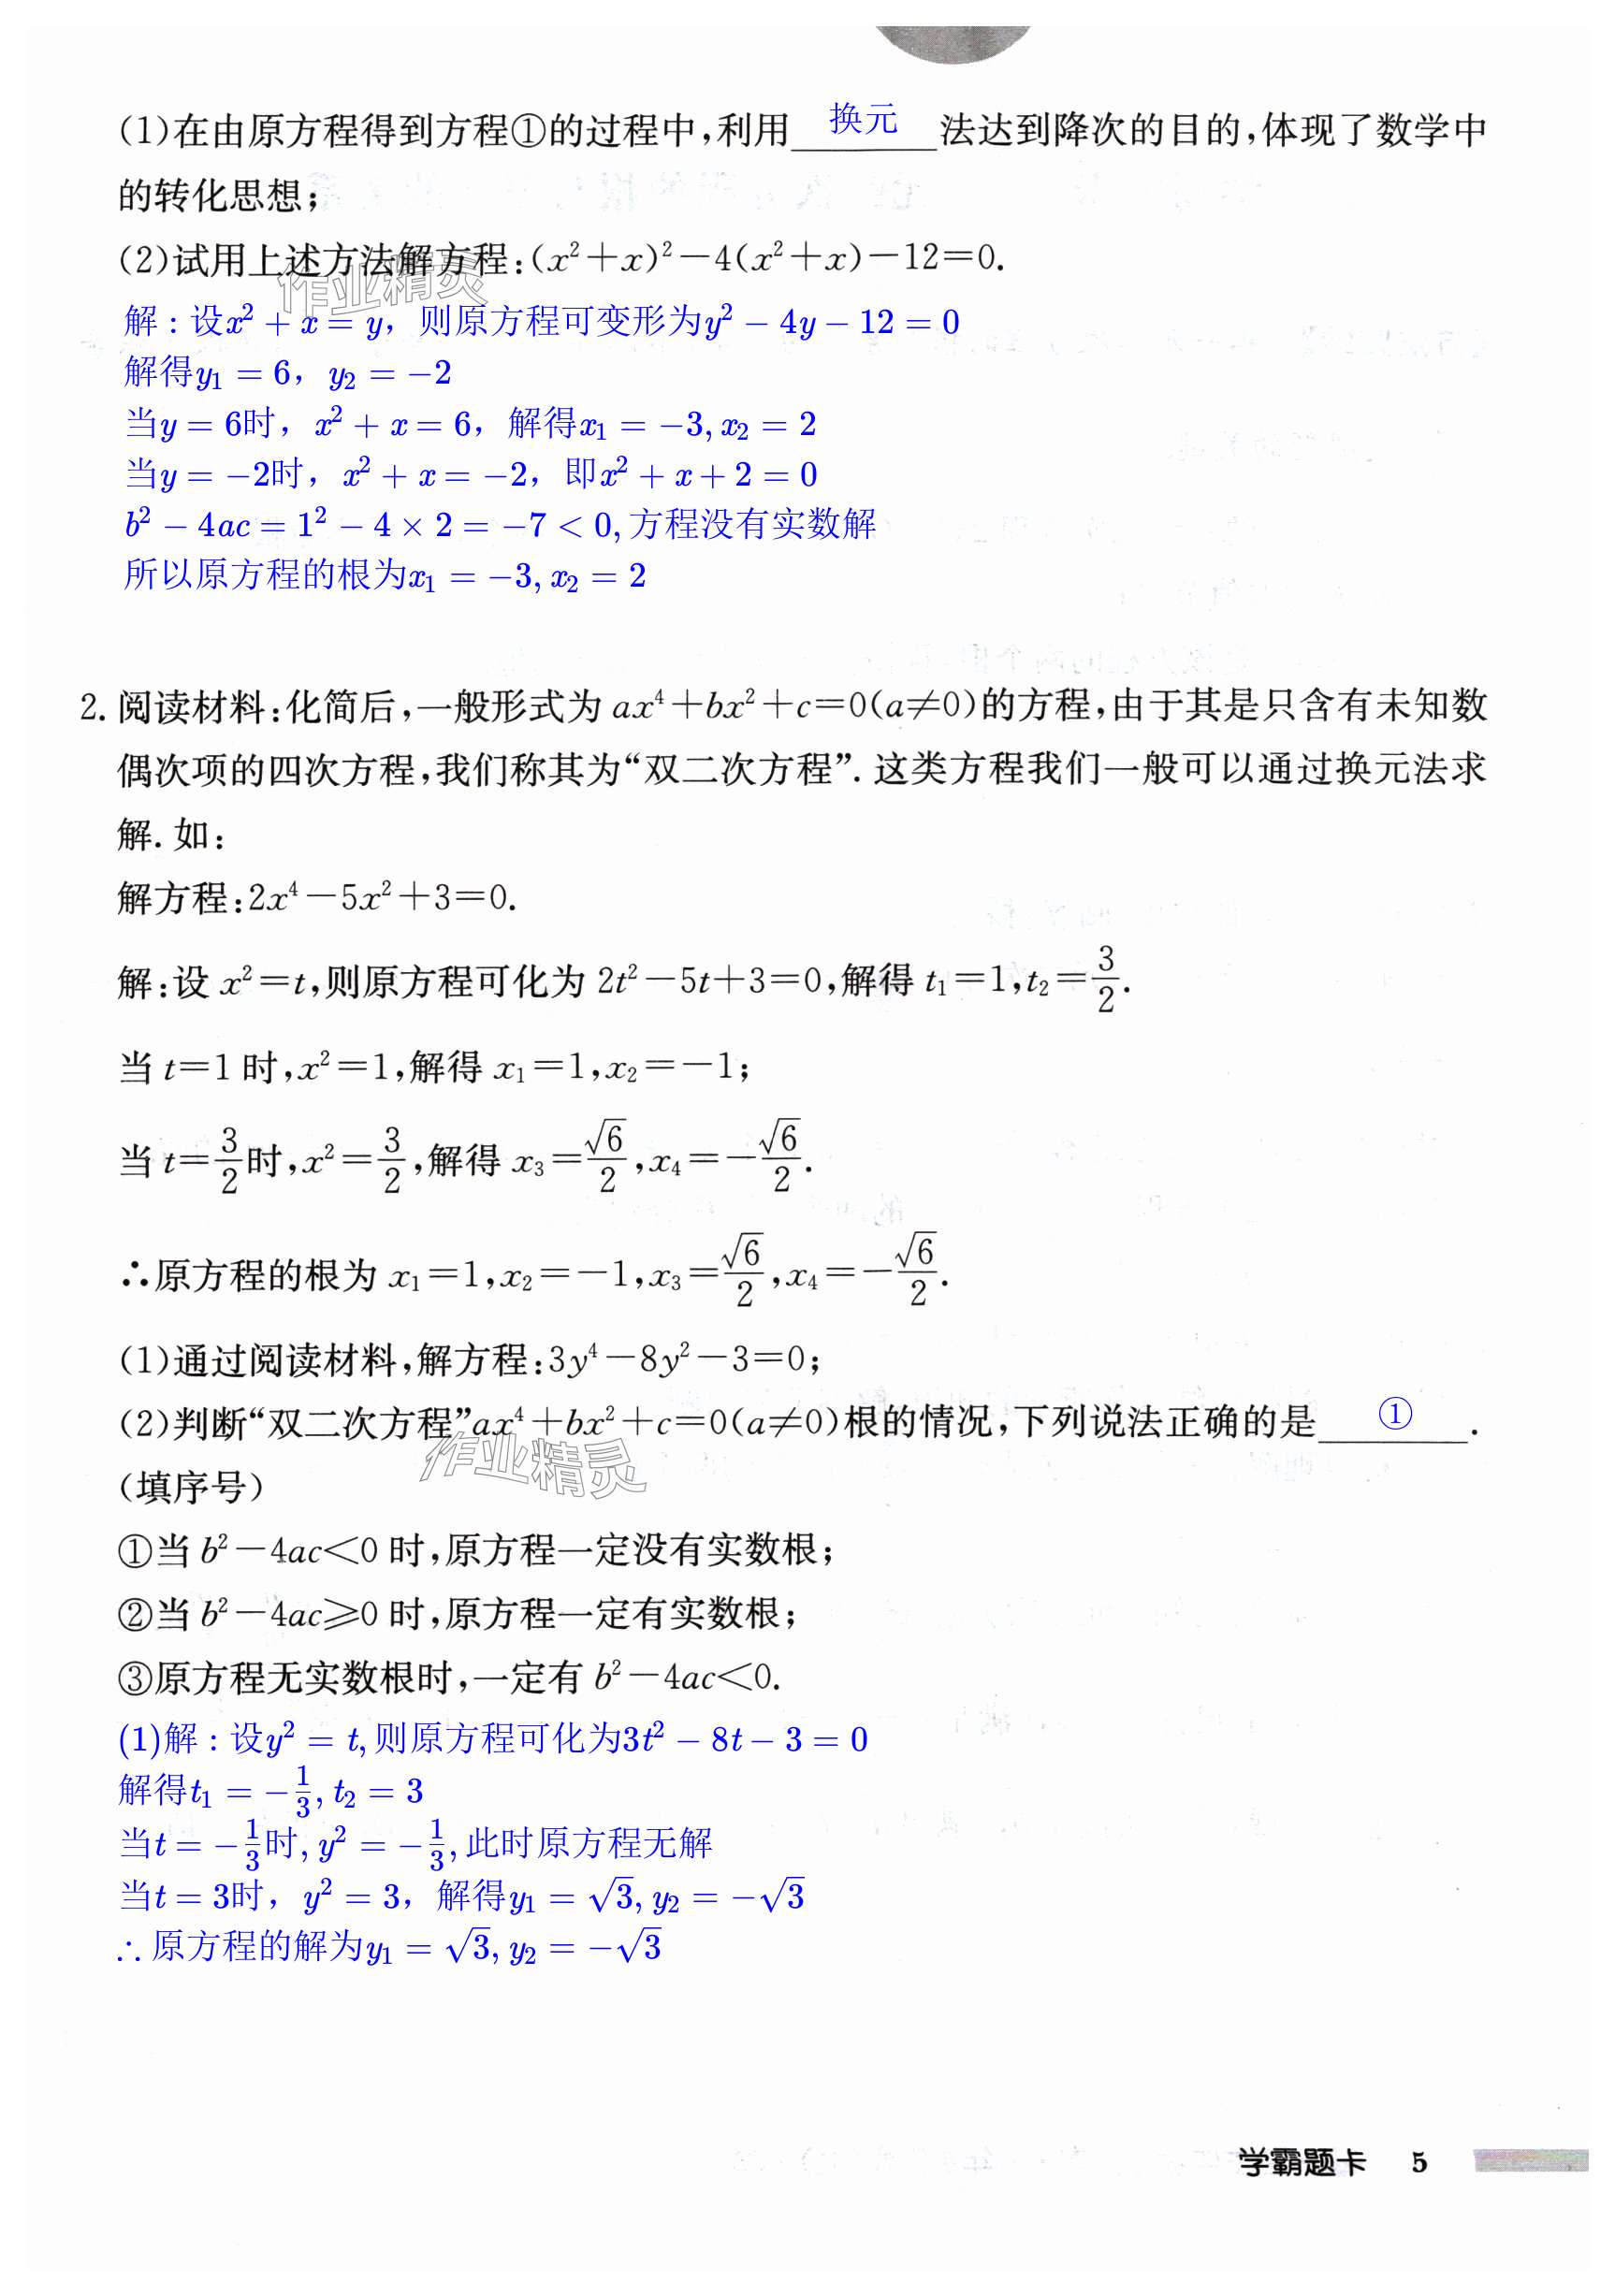 (1)在由原方程得到方程①的过程中,利用 换元 法达到降次的目的,体现了数学中
的转化思想;
(2)试用上述方法解方程:(x²+x)²-4(x²+x)-12=0.
作业精灵
解：设x²+x=y，则原方程可变形为y²-4y-12=0
解得y₁=6，y₂=-2
当y=6时，x²+x=6，解得x₁=-3,x₂=2
当y=-2时，x²+x=-2，即x²+x+2=0
b²-4ac=1²-4×2=-7<0,方程没有实数解
所以原方程的根为x₁=-3,x₂=2
2. 阅读材料:化简后,一般形式为 ax⁴+bx²+c=0(a≠0)的方程,由于其是只含有未知数
偶次项的四次方程,我们称其为“双二次方程”. 这类方程我们一般可以通过换元法求
解. 如:
解方程:2x⁴-5x²+3=0.
解:设 x²=t,则原方程可化为 2t²-5t+3=0,解得 t₁=1,t₂=3/2.
当 t=1 时,x²=1,解得 x₁=1,x₂=-1;
当 t=3/2时,x²=3/2,解得 x₃=√6/2,x₄=-√6/2.
∴原方程的根为 x₁=1,x₂=-1,x₃=√6/2,x₄=-√6/2.
(1)通过阅读材料,解方程:3y⁴-8y²-3=0;
(2)判断“双二次方程”ax⁴+bx²+c=0(a≠0)根的情况,下列说法正确的是 ① .
作业精灵
(填序号)
①当 b²-4ac<0 时,原方程一定没有实数根;
②当 b²-4ac⩾0 时,原方程一定有实数根;
③原方程无实数根时,一定有 b²-4ac<0.
(1)解：设y²=t,则原方程可化为3t²-8t-3=0
解得t₁=-1/3,t₂=3
当t=-1/3时,y²=-1/3,此时原方程无解
当t=3时，y²=3，解得y₁=√3,y₂=-√3
∴原方程的解为y₁=√3,y₂=-√3
学霸题卡 5